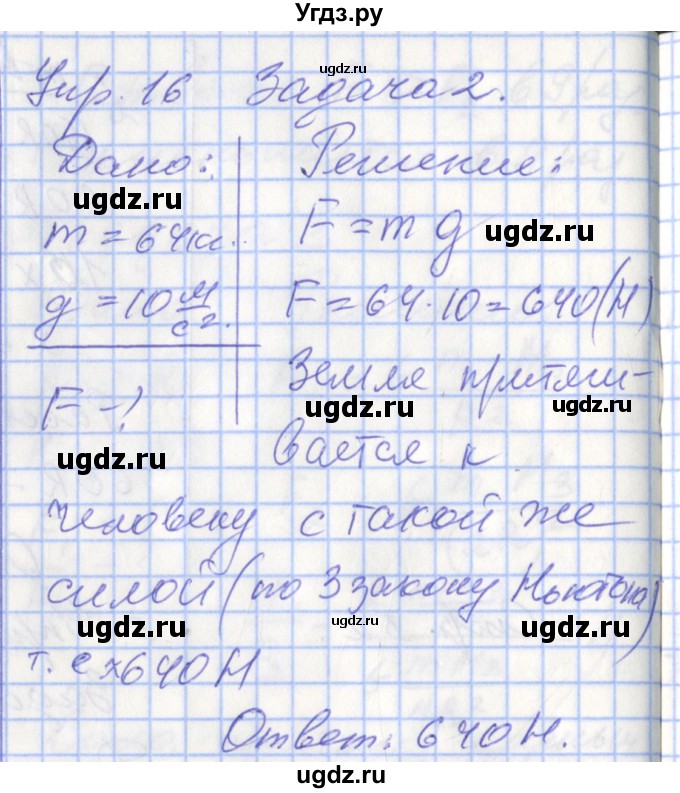 Угдз.ру
ugdz.ru
Упр. 16 Задача 2.
Дано: Решение:
ugdz.ru
m = 64кг. F = mg
ugdz.ru
g = 10 м/с².
F = 64·10 = 640(Н)
F - ?
Земля притяги-
ugdz.ru
вается к
ugdz.ru
человеку с такой же
ugdz.ru
силой (по 3 закону Ньютона)
ugdz.ru ugdz.ru
т. е 640 Н
Ответ: 640 Н.
ugdz.ru
ugdz.ru